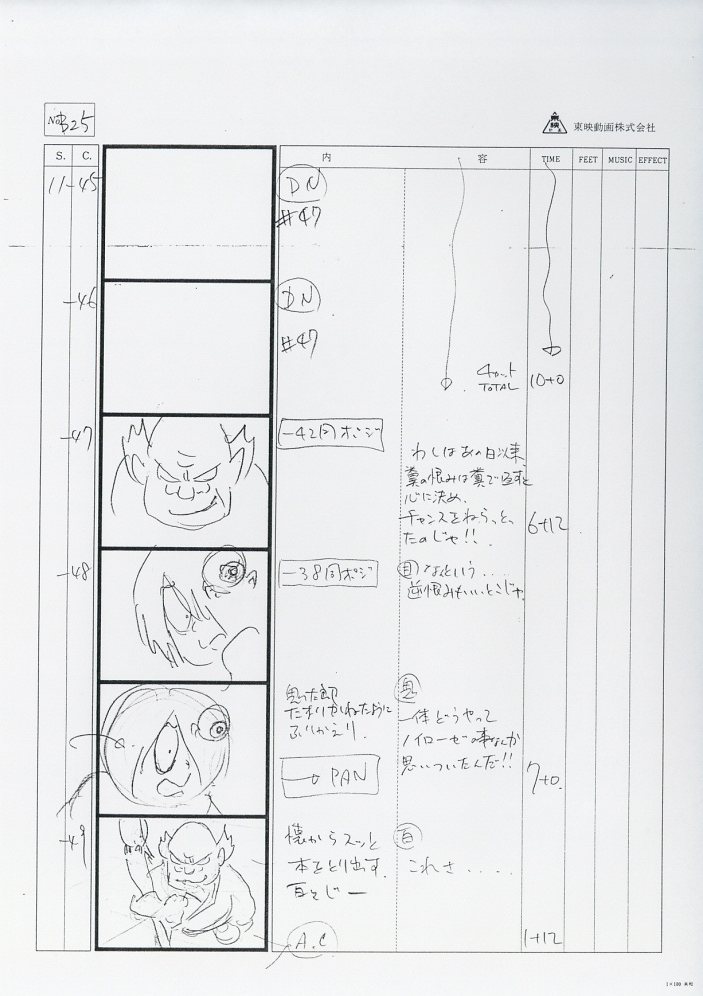 No. B25
東映動画株式会社
S. C. 内 容 TIME FEET MUSIC EFFECT
11-45
DN
#47
-46
DN
#47
4カット
TOTAL
10+0
-47
-42同ポジ
わしはあの日以来
糞の恨みは糞で返すと
心に決め、
チャンスをねらっとっ
たのじゃ!!
6+12
-48
-38同ポジ
目 なんという...
逆恨みもいいとこじゃ
鬼太郎
たまりかねたように
ふりかえり.
→ PAN
鬼
一体どうやって
ノイローゼの事なんか
思いついたんだ!!
7+0
-49
懐からスッと
本をとり出す.
百々じー
百
これさ....
A.C
1+12